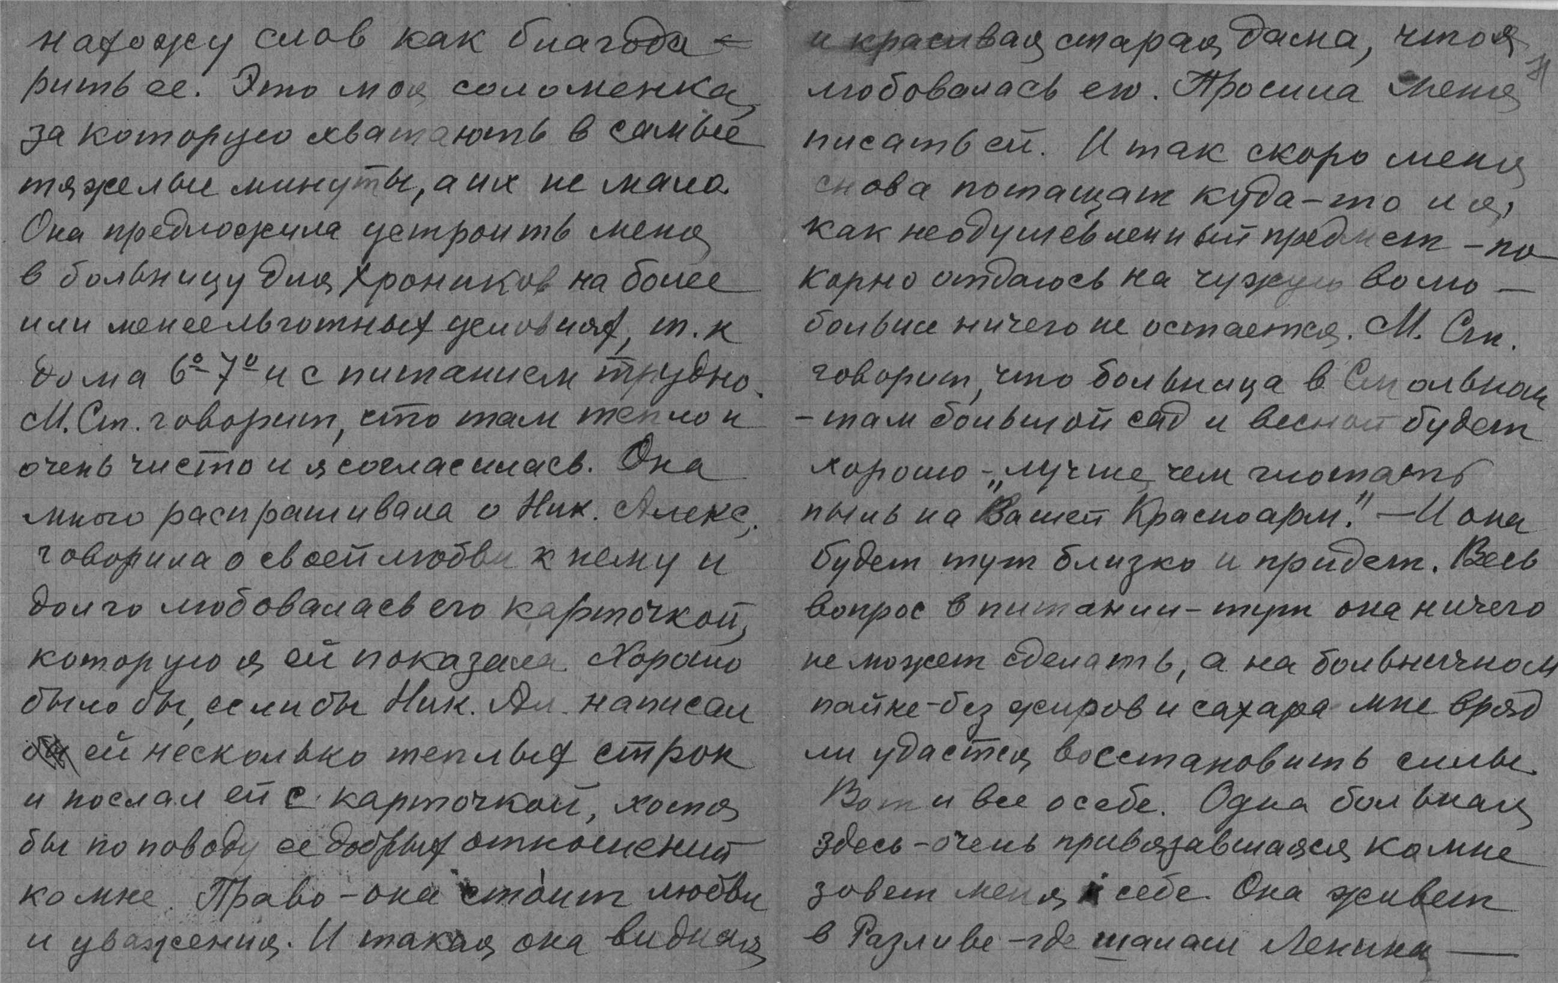 нахожу слов как благода-
рить ее. Это моя соломенка,
за которую хватаютъ в самые
тяжелые минуты, а их не мало.
Она предложила устроить меня
в больницу для хроников на более
или менее льготных условиях, т.к
дома 6°-7° и с питанием трудно.
М. Ст. говорит, что там тепло и
очень чисто и я согласилась. Она
много распрашивала о Ник. Алекс.,
говорила о своей любви к нему и
долго любовалась его карточкой,
которую я ей показала. Хорошо
было бы, если бы Ник. Ал. написал
ей несколько теплых строк
и послал ей с карточкой, хотя
бы по поводу ее добрых отношений
ко мне. Право - она стоит любви
и уважения. И такая она видная
и красивая старая дама, что я
любовалась ею. Просила меня
писать ей. И так скоро меня
снова потащат куда-то и я,
как неодушевленный предмет - по
корно отдаюсь на чужую волю -
больше ничего не остается. М. Ст.
говорит, что больница в Смольном
- там большой сад и весной будет
хорошо - "лучше, чем глотать
пыль на Вашей Красноарм." - И она
будет тут близко и придет. Весь
вопрос в питании - тут она ничего
не может сделать, а на больничном
пайке - без жиров и сахара мне вряд
ли удастся восстановить силы.
Вот и все о себе. Одна больная
здесь - очень привязавшаяся ко мне
зовет меня к себе. Она живет
в Разливе - где шалаш Ленина -